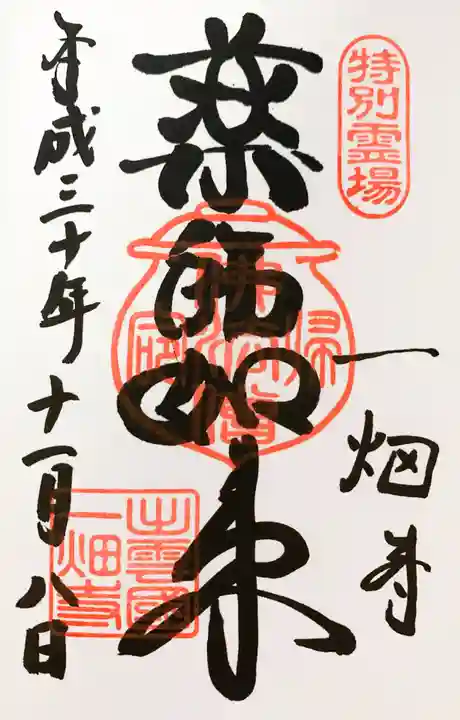 特別霊場
一畑寺
薬師如来
平成三十年十一月八日
出雲國
一畑寺